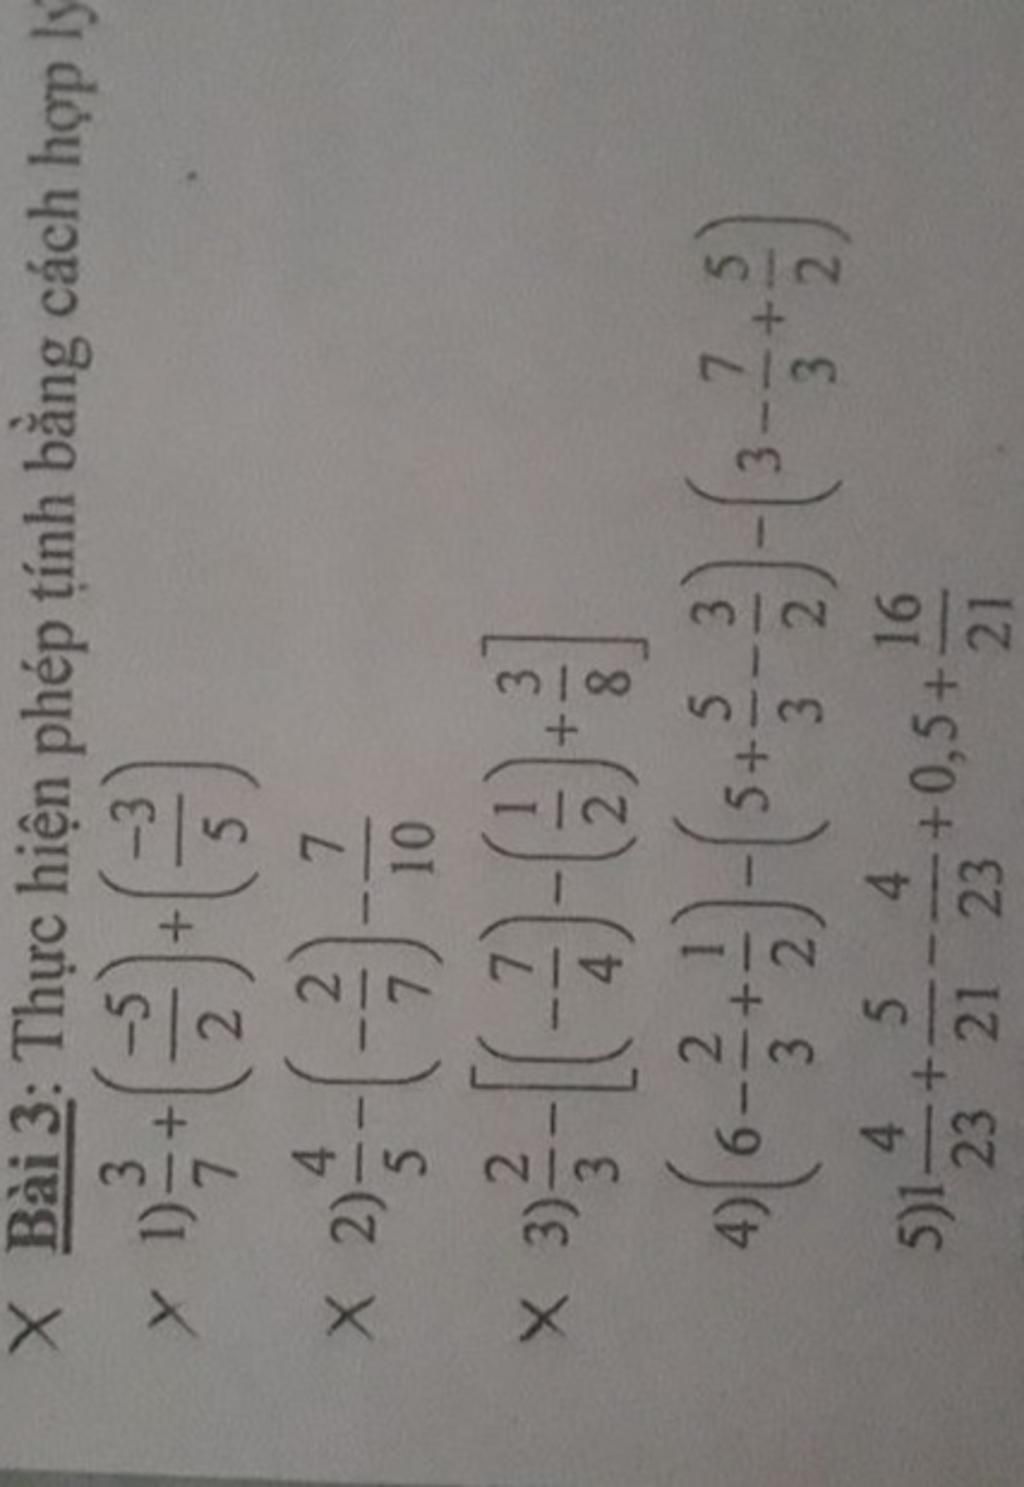 X Bài 3: Thực hiện phép tính bằng cách hợp lý
X 1) 3/7 + (-5/2) + (-3/5)
X 2) 4/5 - (-2/7) - 7/10
X 3) 2/3 - [(-7/4) - (1/2) + 3/8]
4) (6 - 2/3 + 1/2) - (5 + 5/3 - 3/2) - (3 - 7/3 + 5/2)
5) 1 4/23 + 5/21 - 4/23 + 0,5 + 16/21